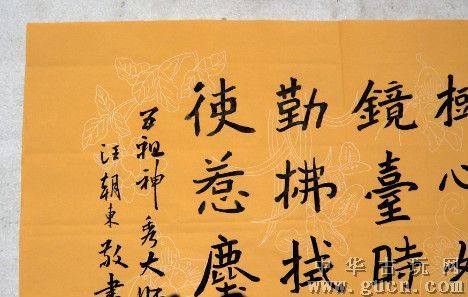 心
鏡臺時
勤拂拭
使惹塵
祖神秀大師
汪朝東敬書
中华古玩网
www.gucn.com